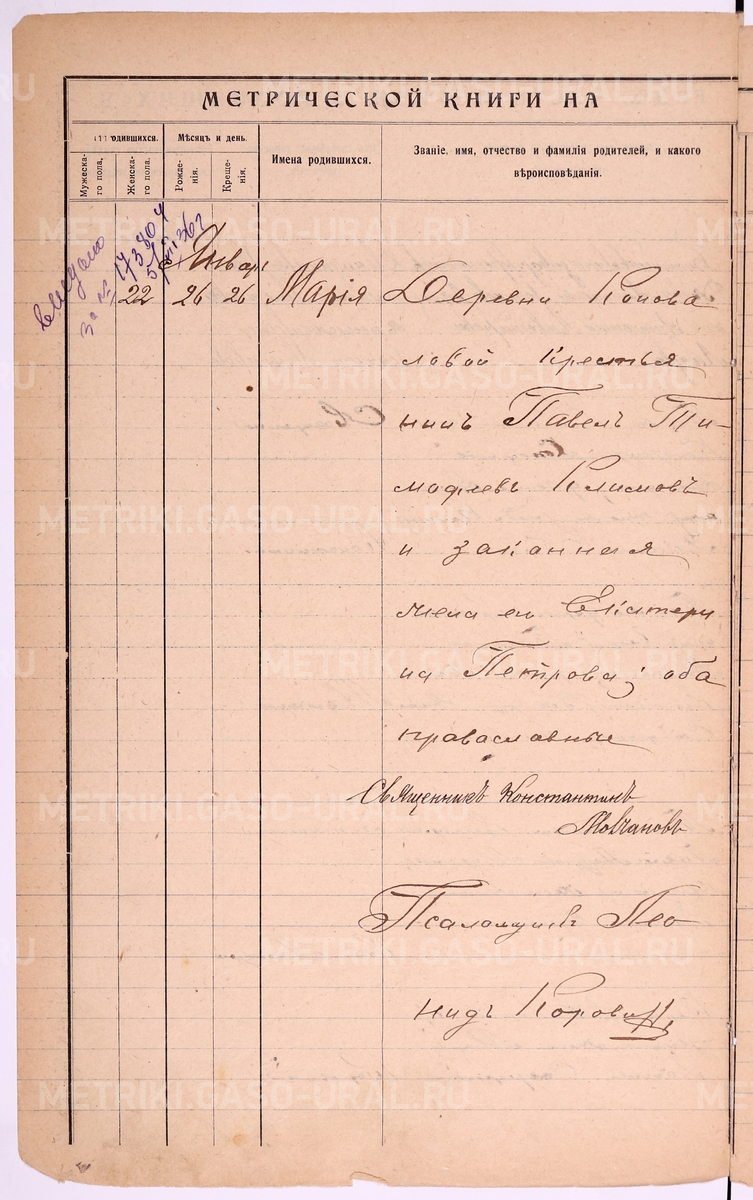 МЕТРИЧЕСКОЙ КНИГИ НА
родившихся.
Мѣсяцъ и день.
Имена родившихся.
Званіе, имя, отчество и фамилія родителей, и какого
вѣроисповѣданія.
Мужеска-
го пола,
Женска-
го пола,
Рожде-
нія.
Креще-
нія.
за №
173804
Январь
22 26 26 Марія Деревни Конова
ловой крестья
нинъ Павелъ Ти-
мофеевъ Климовъ
и законная
жена его Екатери
на Петрова; оба
православные
Священникъ Константинъ
Молчановъ
Псаломщикъ Лео
нидъ Коровинъ
METRIKI.GASO-URAL.RU